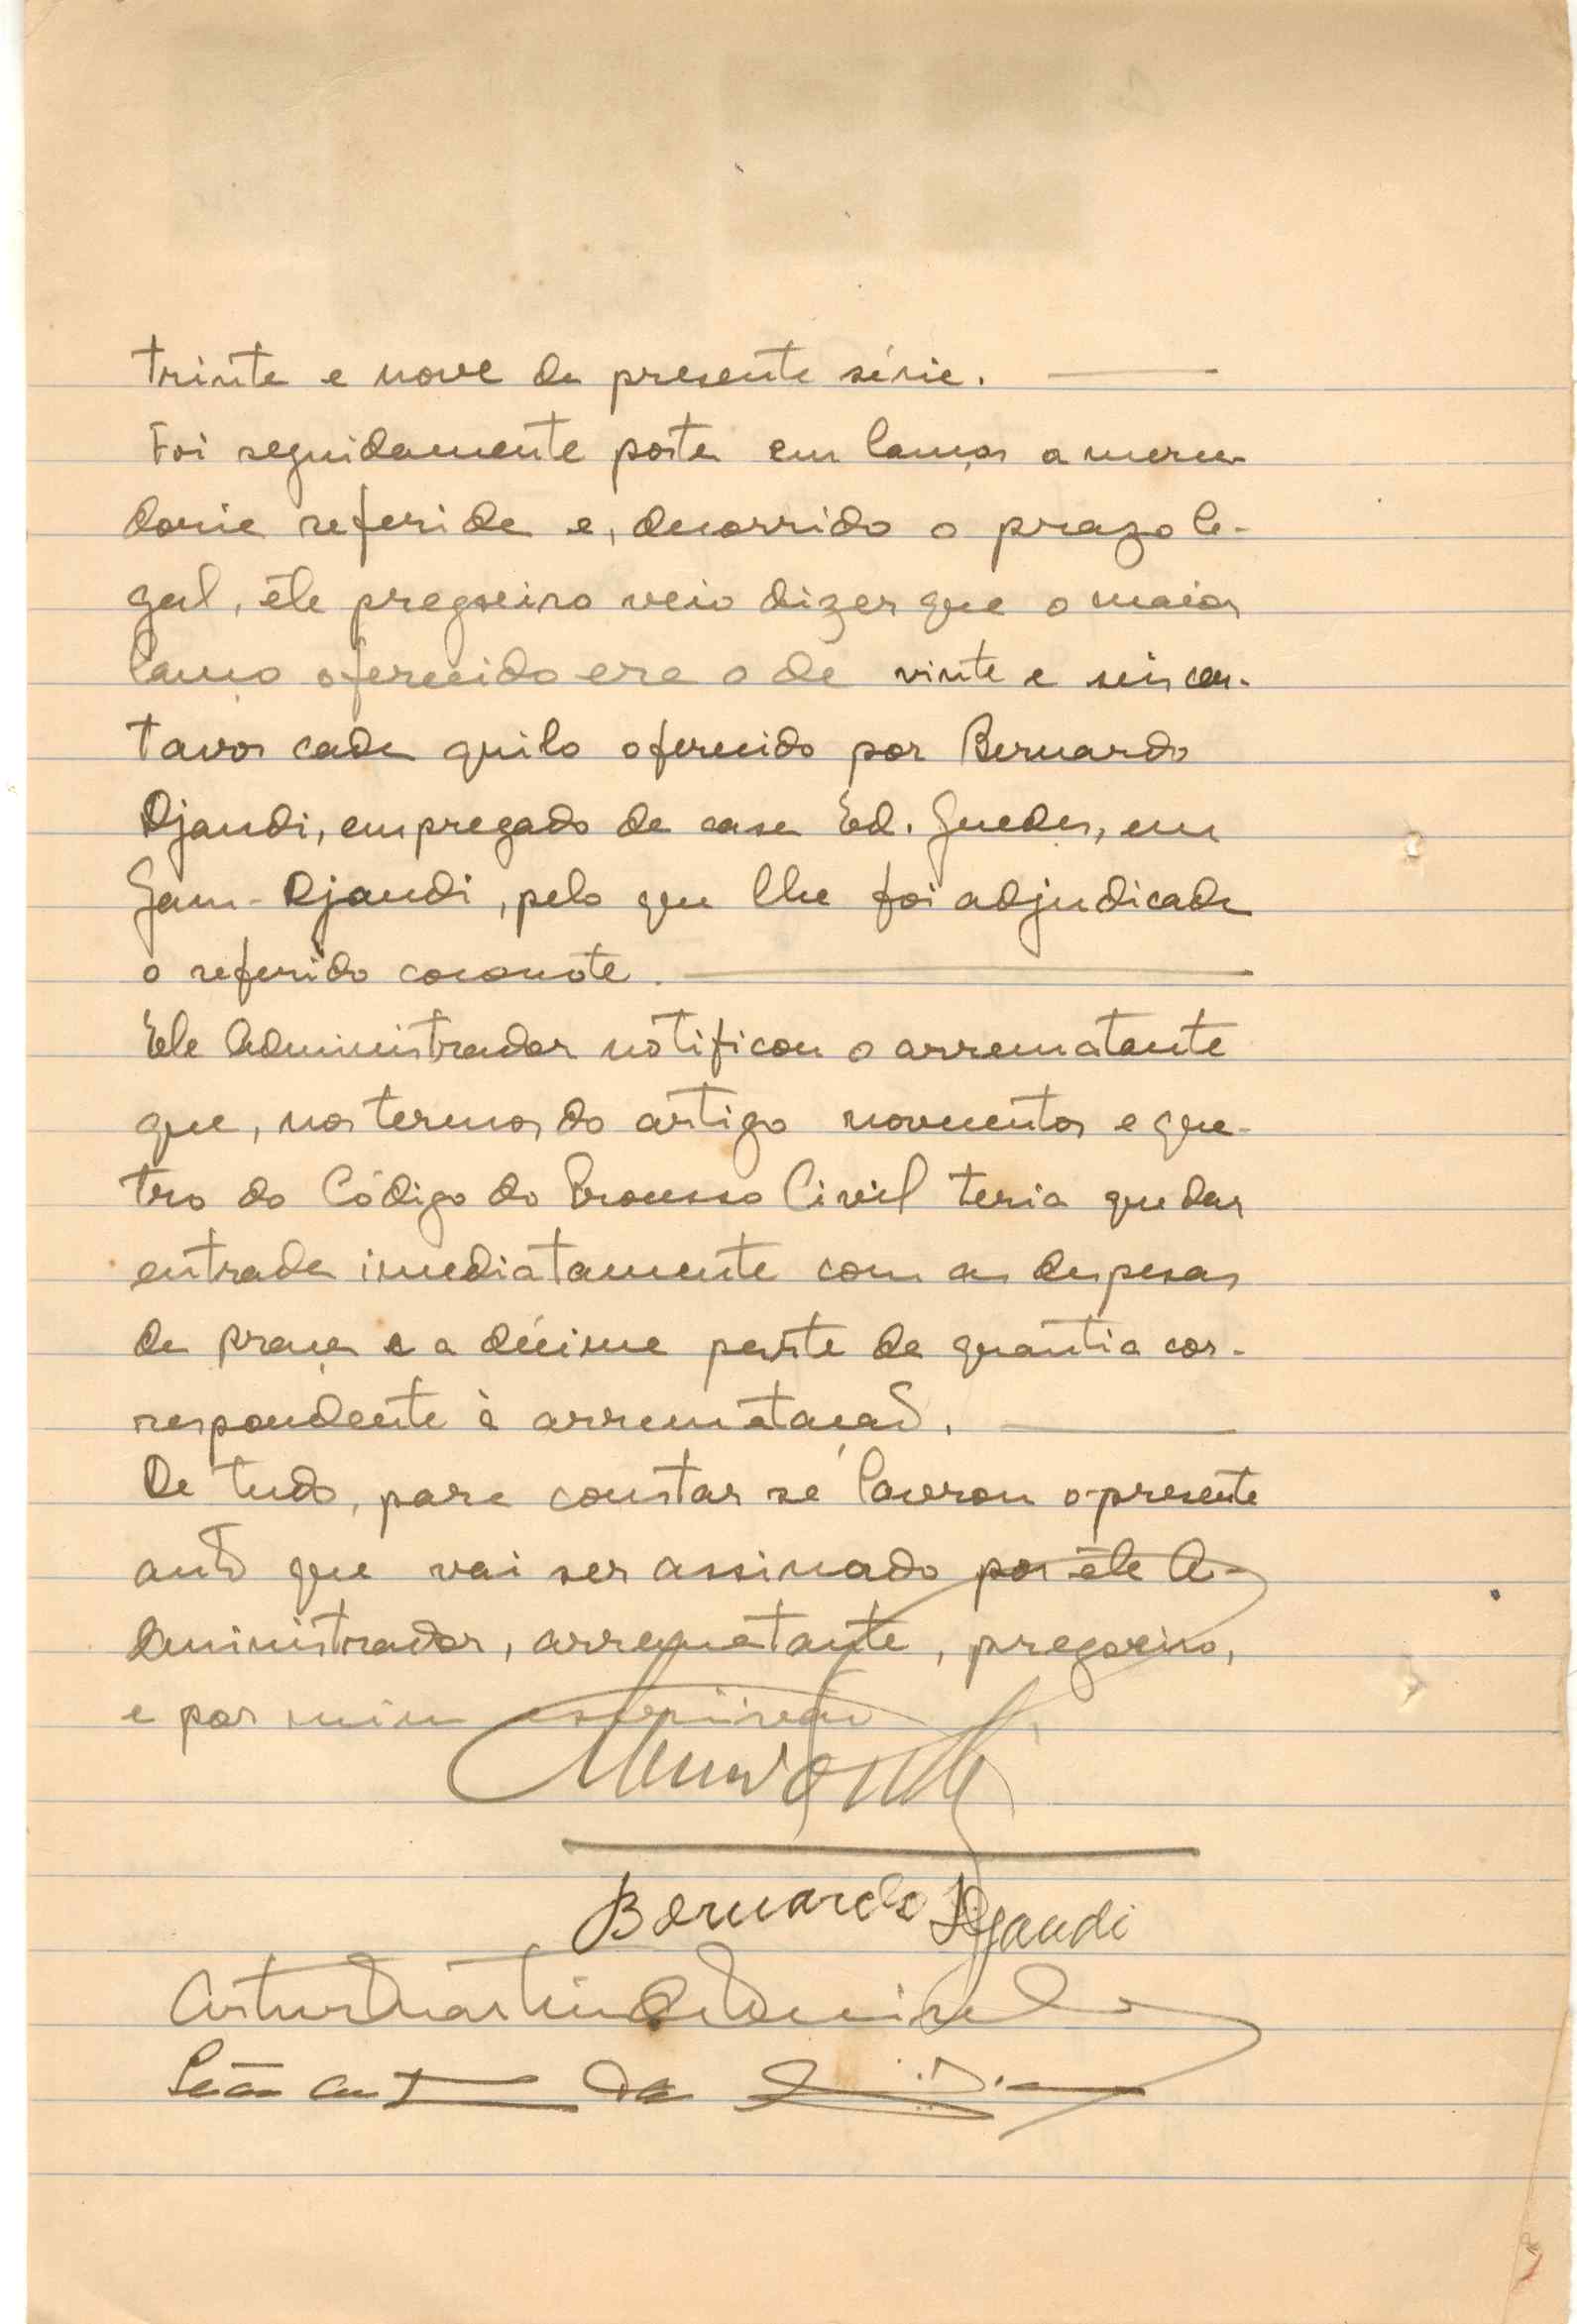 trinta e nove da presente série.
Foi seguidamente posta em lanços a merca-
doria referida e, decorrido o prazo le-
gal, êle pregoeiro veio dizer que o maior
lanço oferecido era o de vinte e seis cen-
tavos cada quilo oferecido por Bernardo
Djandi, empregado da casa Ed. Guedes, em
Gam-Djandi, pelo que lhe foi adjudicada
o referido coconote.
Êle Administrador notificou o arrematante
que, nos termos do artigo novecentos e qua-
tro do Código do Processo Civil teria que dar
entrada imediatamente com as despesas
da praça e a décima parte da quantia cor-
respondente à arrematação.
De tudo, para constar se lavrou o presente
auto que vai ser assinado por êle A-
dministrador, arrematante, pregoeiro,
e por mim escrivão
Bernardo Djandi
Artur Martins de
da